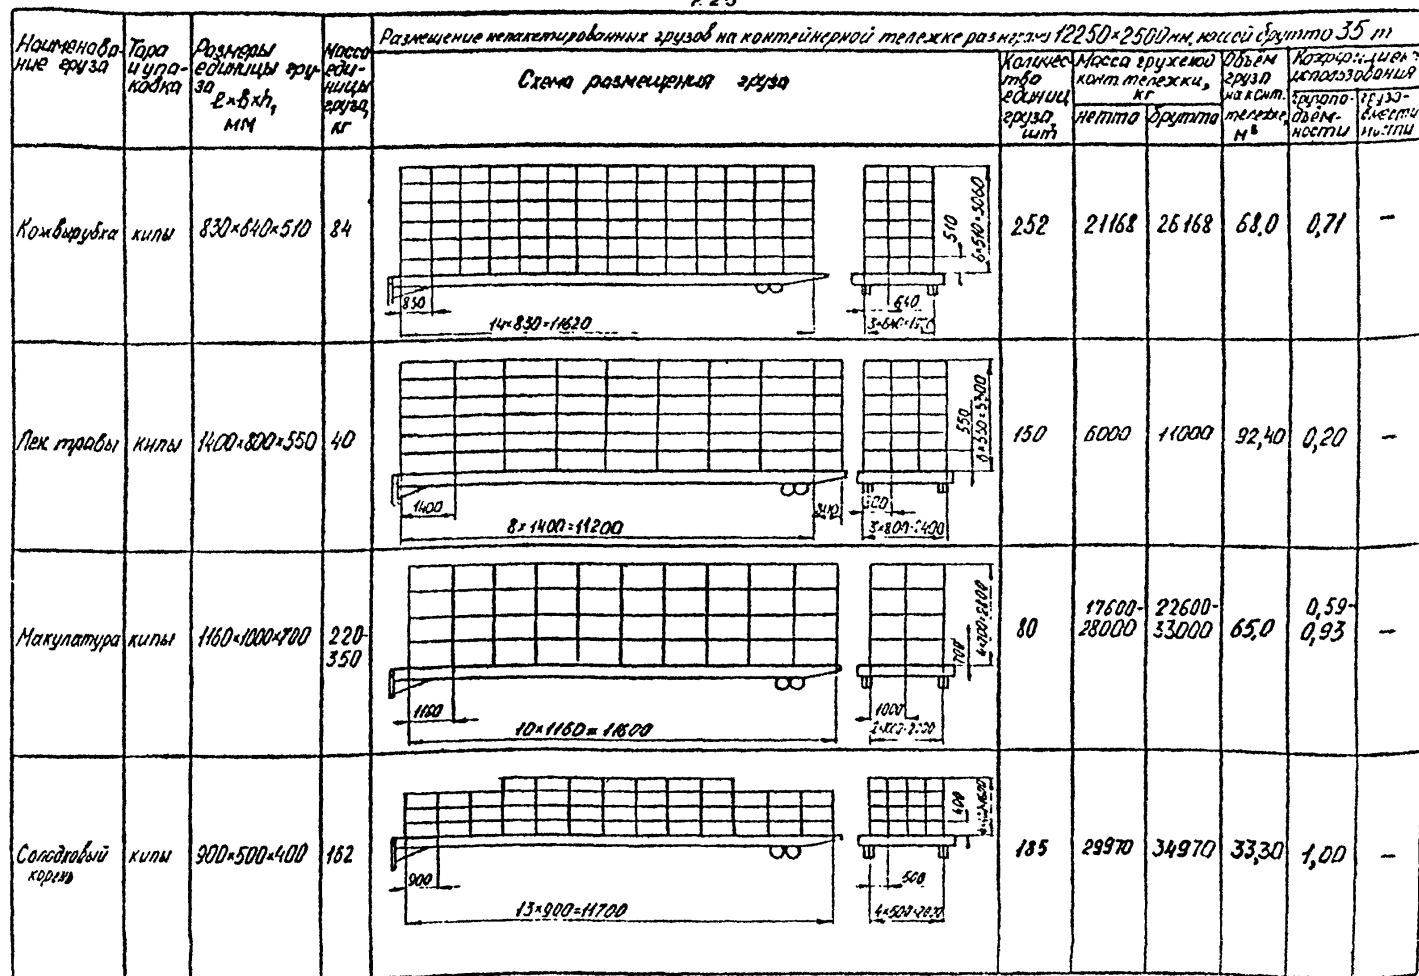 Размещение непакетированных грузов на контейнерной тележке размером 12250×2500мм, массой брутто 35 т
Наименова-
ние груза
Тара
и упа-
ковка
Размеры
единицы гру-
за
l×b×h,
мм
Масса
еди-
ницы
груза,
кг
Схема размещения груза
Количес-
тво
единиц
груза,
шт
Масса груженой
конт. тележки,
кг
нетто
брутто
Объём
груза
на конт.
тележке,
м³
Коэффициент
использования
грузопо-
дъём-
ности
Кожвырубка
кипы
830×640×510
84
830
14×830=11620
510
6×510=3060
640
252
21168
26168
68,0
0,71
–
Лек травы
кипы
1400×800×550
40
1400
8×1400=11200
550
6×550=3300
3×800=2400
150
6000
11000
92,40
0,20
–
Макулатура
кипы
1160×1000×700
220-
350
1160
10×1160=11600
700
1000
80
17600-
28000
22600-
33000
65,0
0,59-
0,93
–
Солодковый
корень
кипы
900×500×400
162
900
13×900=11700
400
500
4×500=2000
185
29970
34970
33,30
1,00
–